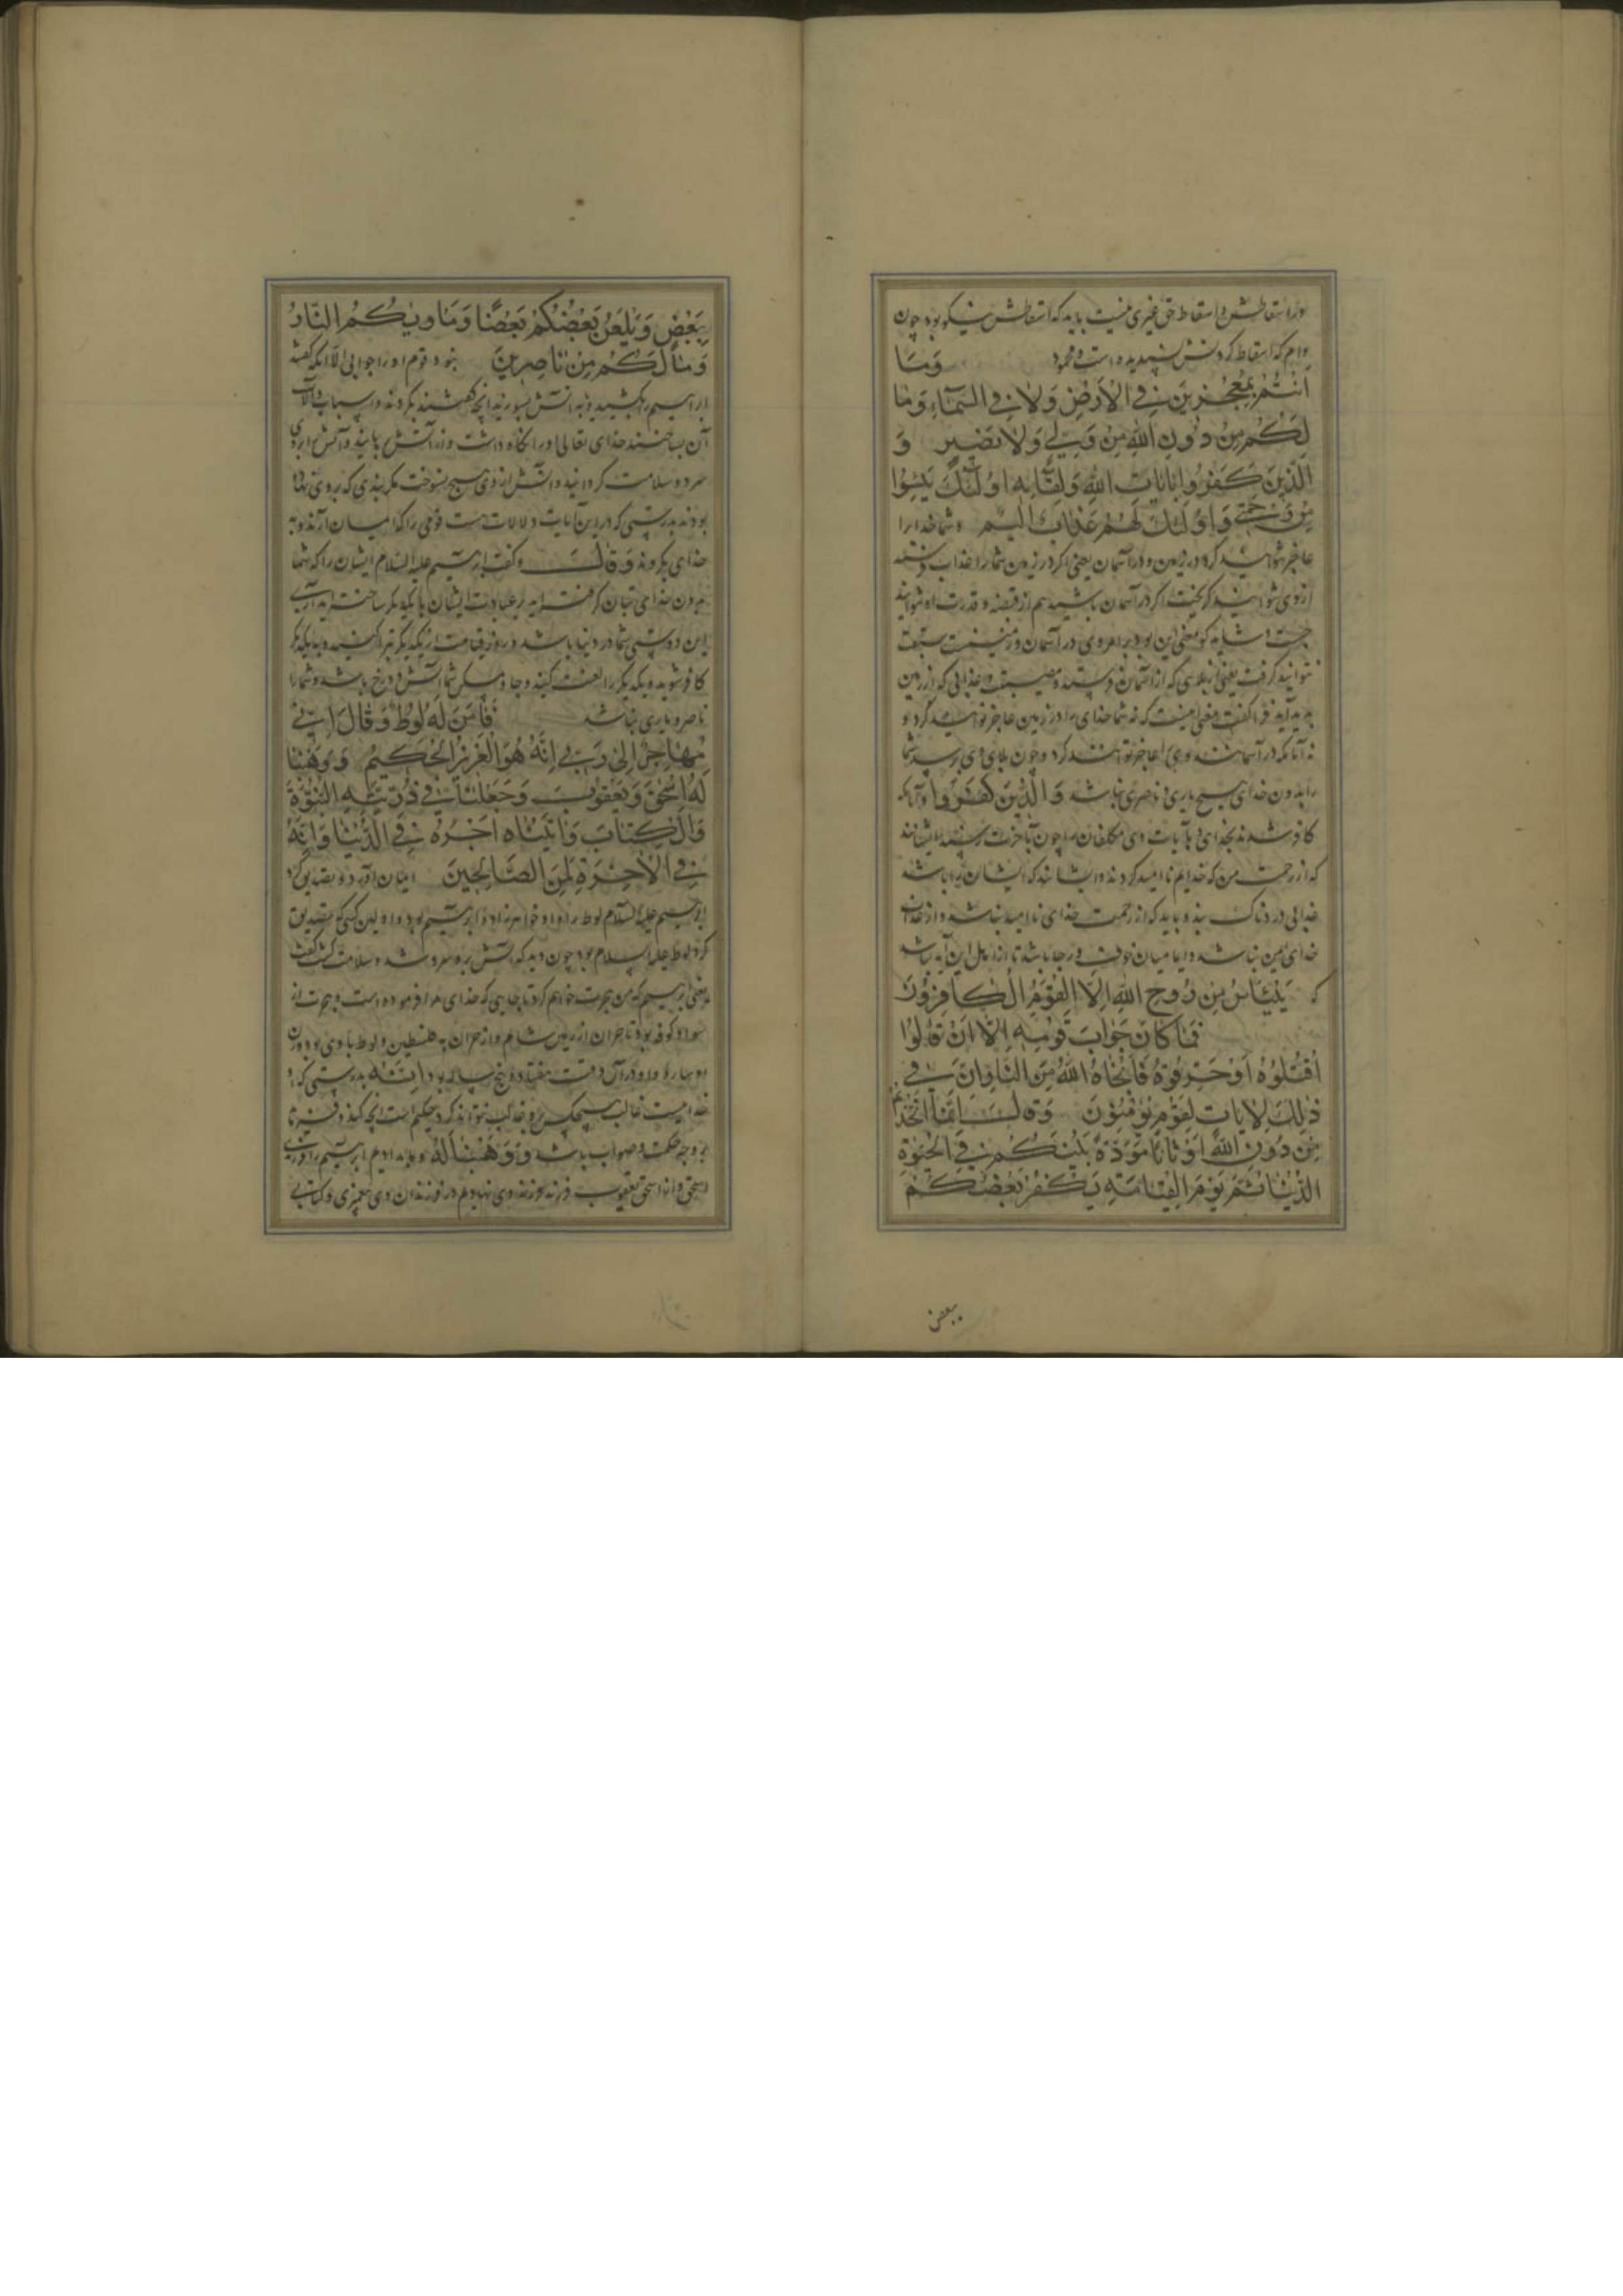 ودر اسقاطش و اسقاط حق غیری نیست باید که اسقاطش نیکو بود چون
وام که اسقاط کردنش پسندیده است و محمود وَمَا
اَنْتُمْ بِمُعْجِزِينَ فِي الْاَرْضِ وَلَا فِي السَّمَاءِ وَمَا
لَكُمْ مِنْ دُونِ اللهِ مِنْ وَلِيٍّ وَلَا نَصِيرٍ وَ
الَّذِينَ كَفَرُوا بِآيَاتِ اللهِ وَلِقَائِهِ اُولٰئِكَ يَئِسُوا
مِنْ رَحْمَتِي وَاُولٰئِكَ لَهُمْ عَذَابٌ اَلِيمٌ و شما خدایرا
عاجز نتوانید کرد در زمین و در آسمان یعنی اگر در زمین شما را عذاب فرستد
از وی نتوانید گریخت اگر در آسمان باشید هم از قبضه و قدرت او نتوانید
جست و شاید که معنی این بود بر امر وی در آسمان و زمین سبقت
نتوانید گرفت یعنی از بلایی که از آسمان فرستد و مصیبت و عذابی که از زمین
پدید آید قرا گفت معنی اینست که نه شما خدای را در زمین عاجز توانید کرد و
نه آنانکه در آسمانند وی را عاجز توانند کرد و چون بلای وی برسد شما
را بدون خدای هیچ یاری و ناصری نباشد وَالَّذِينَ كَفَرُوا و آنانکه
کافر شدند بخدای و بآیات وی مکلفان را چون بآخرت رسند ایشانند
که از رحمت من که خدایم ناامید کردند و ایشانند که ایشان را باشد
عذابی دردناک بنده باید که از رحمت خدای ناامید نباشد و از عذاب
خدای ایمن نباشد و اما میان خوف و رجا باشد تا از اهل این آیه نباشد
که يَيْئَاسُ مِنْ رَوْحِ اللهِ اِلَّا الْقَوْمُ الْكَافِرُونَ
فَمَا كَانَ جَوَابَ قَوْمِهِ اِلَّا اَنْ قَالُوا
اُقْتُلُوهُ اَوْ حَرِّقُوهُ فَاَنْجَاهُ اللهُ مِنَ النَّارِ اِنَّ فِي
ذٰلِكَ لَآيَاتٍ لِقَوْمٍ يُؤْمِنُونَ وَقَالَ اِنَّمَا اتَّخَذْتُمْ
مِنْ دُونِ اللهِ اَوْثَانًا مَوَدَّةً بَيْنِكُمْ فِي الْحَيٰوةِ
الدُّنْيَا ثُمَّ يَوْمَ الْقِيَامَةِ يَكْفُرُ بَعْضُكُمْ
ببعض
بِبَعْضٍ وَيَلْعَنُ بَعْضُكُمْ بَعْضًا وَمَاوٰيكُمُ النَّارُ
وَمَا لَكُمْ مِنْ نَاصِرِينَ نبود قوم او را جوابی الا آنکه گفتند
ابراهیم را بکشید و به آتش بسوزید آنچه گفتند بکردند و اسباب و آلات
آن بساختند خدای تعالی او را نگاه داشت و از آتش برهانید و آتش را بر وی
سرد و سلامت گردانید و آتش از وی هیچ نسوخت مگر بندی که بر وی نهاده
بودند بدرستی که در این آیات و دلالات هست قومی را که ایمان آرند و به
خدای بگروند وَقَالَ و گفت ابراهیم علیه السلام ایشان را که شما
بدون خدای بتان گرفته‌اید بر عبادت ایشان با یکدیگر ساخته‌اید
این دوستی شما در دنیا باشد و روز قیامت از یکدیگر تبرا کنید و بیکدیگر
کافر شوید و یکدیگر را لعنت کنید و جا و مسکن شما آتش دوزخ باشد و شما را
ناصر و یاری نباشد فَاٰمَنَ لَهُ لُوطٌ وَقَالَ اِنِّي
مُهَاجِرٌ اِلٰى رَبِّي اِنَّهُ هُوَ الْعَزِيزُ الْحَكِيمُ وَوَهَبْنَا
لَهُ اِسْحٰقَ وَيَعْقُوبَ وَجَعَلْنَا فِي ذُرِّيَّتِهِ النُّبُوَّةَ
وَالْكِتَابَ وَاٰتَيْنَاهُ اَجْرَهُ فِي الدُّنْيَا وَاِنَّهُ
فِي الْاٰخِرَةِ لَمِنَ الصَّالِحِينَ ایمان آورد و تصدیق کرد
ابراهیم علیه السلام لوط را و او خواهرزاده ابراهیم بود و اولین کسی که تصدیق
کرد لوط علیه السلام بود چون دید که آتش بر او سرد شد و سلامت گشت گفت
یعنی ابراهیم که من هجرت خواهم کرد تا جایی که خدای مرا فرموده است و هجرت از
سواد کوفه بود تا حران از زمین شام و از حران به فلسطین و لوط با وی بود و زن
او ساره و او در آن وقت هفتاد و پنج ساله بود اِنَّهُ بدرستی که او
خدایست غالب هیچکس برو غالب نتواند کرد و حکیم است آنچه کند و فرماید
بر وجه حکمت و صواب باشد وَوَهَبْنَا لَهُ و ما بدادیم ابراهیم را فرزندی
اسحق و از اسحق یعقوب فرزند فرزند وی نهادیم در فرزندان وی پیغمبری و کتابی